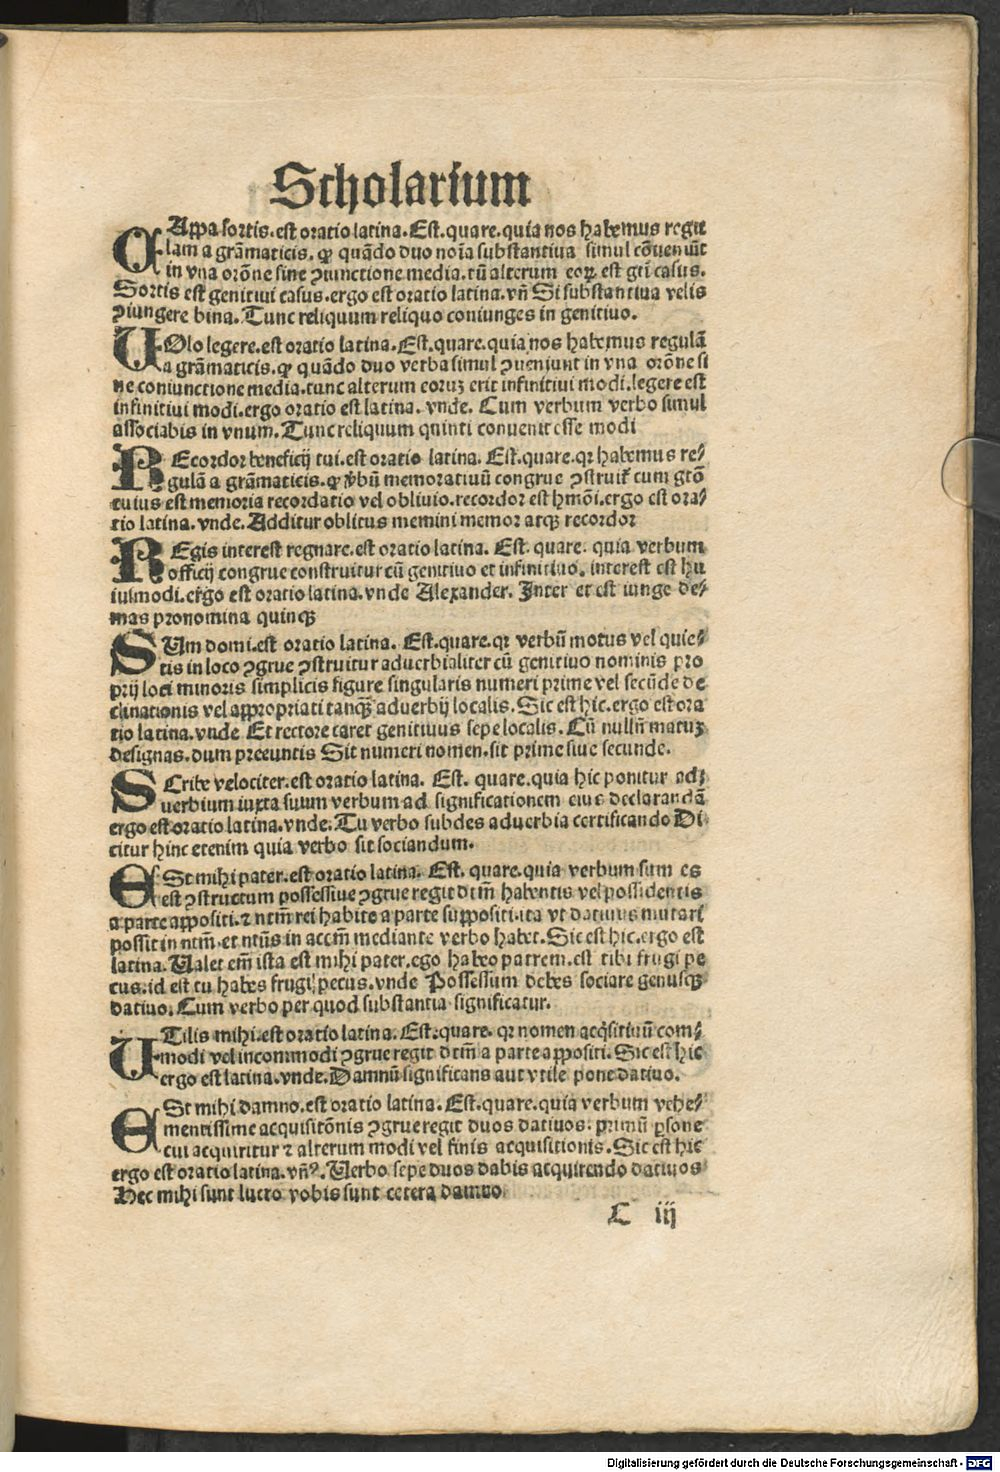 Scholarium
CAppa sortis.est oratio latina.Est.quare.quia nos habemus regu
lam a grāmaticis.qͥ quādo duo noīa substantiua simul cōueniūt
in vna orōne sine ꝯiunctione media.tū alterum eoꝝ est gti casus.
Sortis est genitiui casus.ergo est oratio latina.vñ Si substantiua velis
ꝯiungere bina.Tunc reliquum reliquo coniunges in genitiuo.
UOlo legere.est oratio latina.Est.quare.quia nos habemus regulā
a grāmaticis.qͥ quādo duo verba simul ꝯueniunt in vna orōne si
ne coniunctione media.tunc alterum eoruꝫ erit infinitiui modi.legere est
infinitiui modi.ergo oratio est latina.vnde. Cum verbum verbo simul
associabis in vnum.Tunc reliquum quinti conuenit esse modi
REcordor beneficij tui.est oratio latina. Est.quare.qꝛ habemus re⸗
gulā a grāmaticis.qͥ ꝟbū memoratiuū congrue ꝯstruit᷑ cum gtō
cuius est memoria recordatio vel obliuio.recordor est hmōi.ergo est ora⸗
tio latina.vnde.Additur oblitus memini memor atqꝫ recordor
REgis interest regnare.est oratio latina. Est. quare. quia verbum
officij congrue construitur cū genitiuo et infinitiuo. interest est hu
iusmodi.ergo est oratio latina.vnde Alexander. Inter et est iunge de⸗
mas pronomina quinqꝫ
SUm domi.est oratio latina. Est.quare.qꝛ verbū motus vel quie⸗
tis in loco ꝯgrue ꝯstruitur aduerbialiter cū genitiuo nominis pro
prij loci minoris simplicis figure singularis numeri prime vel secūde de
clinationis vel appropriati tanqꝫ aduerbij localis. Sic est hic.ergo est ora
tio latina.vnde Et rectore caret genitiuus sepe localis. Cū nullū matuꝫ
designas.dum preeuntis Sit numeri nomen.sit prime siue secunde.
SCribe velociter.est oratio latina. Est. quare.quia hic ponitur ad⸗
uerbium iuxta suum verbum ad significationem eius declarandā
ergo est oratio latina.vnde. Tu verbo subdes aduerbia certificando Di
citur hinc etenim quia verbo sit sociandum.
ESt mihi pater.est oratio latina. Est. quare.quia verbum sum es
est ꝯstructum possessiue ꝯgrue regit dtm̄ habentis vel possidentis
a parte appositi.⁊ ntm̄ rei habite a parte suppositi.ita vt datiuus mutari
possit in ntm̄.et ntūs in accm̄ mediante verbo habet.Sic est hic.ergo est
latina.Ualet em̄ ista est mihi pater.ego habeo patrem.est tibi frugi pe
cus.id est tu habes frugi pecus.vnde Possessum debes sociare genusqꝫ
datiuo.Cum verbo per quod substantia significatur.
UTilis mihi.est oratio latina.Est.quare.qꝛ nomen acq̄sitiuū com⸗
modi vel incommodi ꝯgrue regit dtm̄ a parte appositi. Sic est hic
ergo est latina.vnde.Damnū significans aut vtile pone datiuo.
ESt mihi damno.est oratio latina.Est.quare.quia verbum vehe⸗
mentissime acquisitōnis ꝯgrue regit duos datiuos.primū ꝑsone
cui acquiritur ⁊ alterum modi vel finis acquisitionis.Sic est hic
ergo est oratio latina.vñꝰ.Uerbo sepe duos dabis acquirendo datiuos
Hec mihi sunt lucro vobis sunt cetera damno
C iij
Digitalisierung gefördert durch die Deutsche Forschungsgemeinschaft - DFG